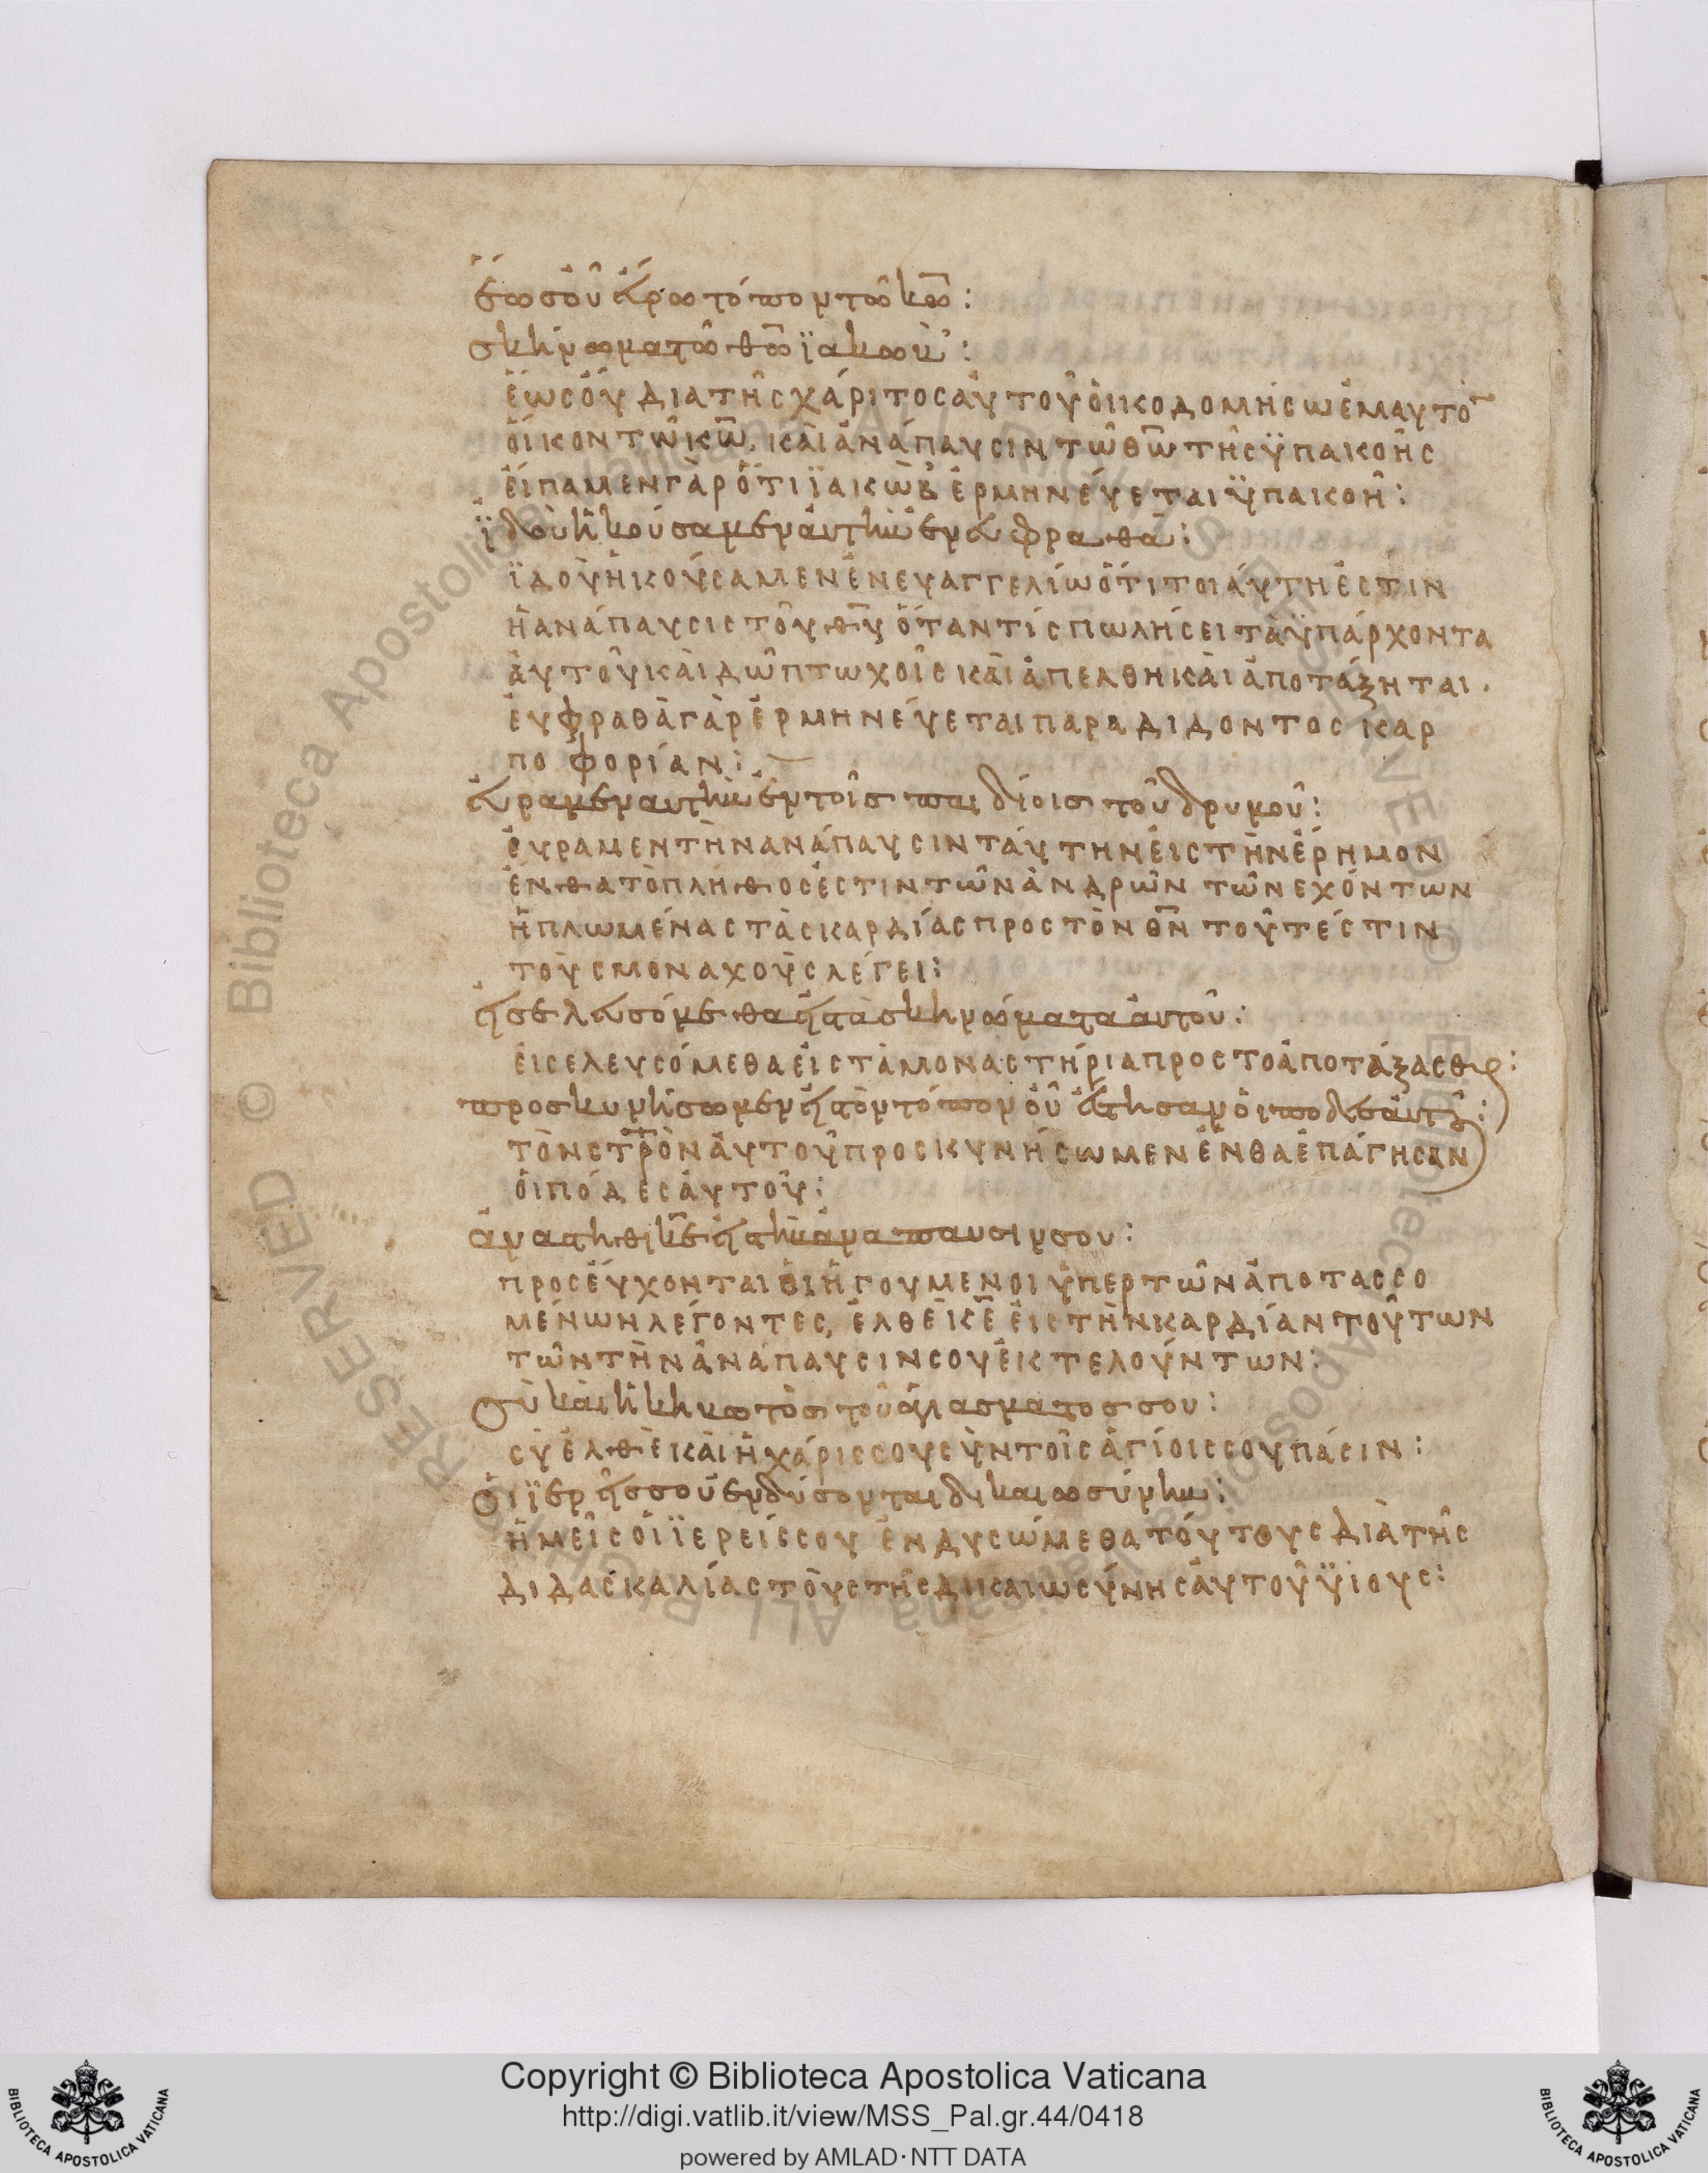 ἕως οὗ εὕρω τόπον τῶ κω̅:
σκήνωμα τῶ θω̅ ϊακώβ:
ἕως οὗ διὰ τῆς χάριτος αὐτοῦ οἰκοδομήσω ἐμαυτὸν
οἶκον τῶ κω̅. καὶ ἀνάπαυσιν τῶ θω̅ τῆς ϋπακοῆς
εἴπαμεν γὰρ ὅτι ϊακὼβ ἑρμηνεύεται ϋπακοὴ:
ϊδοὺ ἠκούσαμεν αὐτὴν ἐν εὐφραθά:
ϊδοὺ ἠκούσαμεν ἐν ευαγγελίω ὅτι τοιάυτη ἐστιν
ἡ ανάπαυσις τοῦ θυ̅ ὅταν τίς πωλήσει τὰ ϋπάρχοντα
ἀυτοῦ καὶ δῶ πτωχοῖς καὶ ἀπελθη καὶ ἀποτάξηται.
ἐυφραθὰ γὰρ ἑρμηνέυεται παραδιδοντος καρ
ποφορίαν:
εὕραμεν αυτὴν ἐν τοῖς παιδίοις τοῦ δρυμοῦ:
ἑυραμεν τὴν ανάπαυσιν τάυτην ἐις τὴν ἔρημον
ἔνθα τὸ πλήθος ἐστιν τῶν ἀνδρῶν τῶν εχόντων
ἡπλωμένας τὰς καρδίας προς τὸν θν̅ τοῦτέστιν
τοὺς μοναχοὺς λέγει:
εἰσελευσόμεθα εἰς τὰ σκηνώματα αὐτοῦ:
ἐισελευσόμεθα εἰς τὰ μοναστήρια προς το ἀποτάξασθαι:
προσκυνήσωμεν εἰς τὸν τόπον οὗ ἔστησαν ὁι πόδες αὐτοῦ:
τὸν στρ̅ὸν ἀυτοῦ προσκυνήσωμεν ἔνθα ἐπάγησαν
ὁι πόδες ἀυτοῦ:
ἀναστηθι κε̅ εἰς τὴν ἀναπαυσιν σου:
προσέυχονται ὁι ἡγουμενοι ὑπερ τῶν ἀποτασσο
μένωη λέγοντες, ἐλθὲ κε̅ ἐις τὴν καρδίαν τοῦτων
τῶν τὴν ἀνάπαυσιν σου ἐκτελούντων:
σὺ καὶ ἡ κηβωτὸς τοῦ ἁγιασματος σου:
σὺ ἐλθὲ καὶ ἡ χάρις σου σὺν τοῖς ἁγίοις σου πάσιν:
ὁι ϊερεῖς σοῦ ἐνδύσονται δικαιωσύνην:
ἡμεῖς ὁι ϊερείς σου ἐνδυσώμεθα τόυτους διὰ τῆς
διδασκαλίας τὸυς τῆς δικαιωσύνης ἀυτοῦ ϋιους:
Copyright © Biblioteca Apostolica Vaticana
http://digi.vatlib.it/view/MSS_Pal.gr.44/0418
powered by AMLAD·NTT DATA
BIBLIOTECA APOSTOLICA VATICANA
BIBLIOTECA APOSTOLICA VATICANA